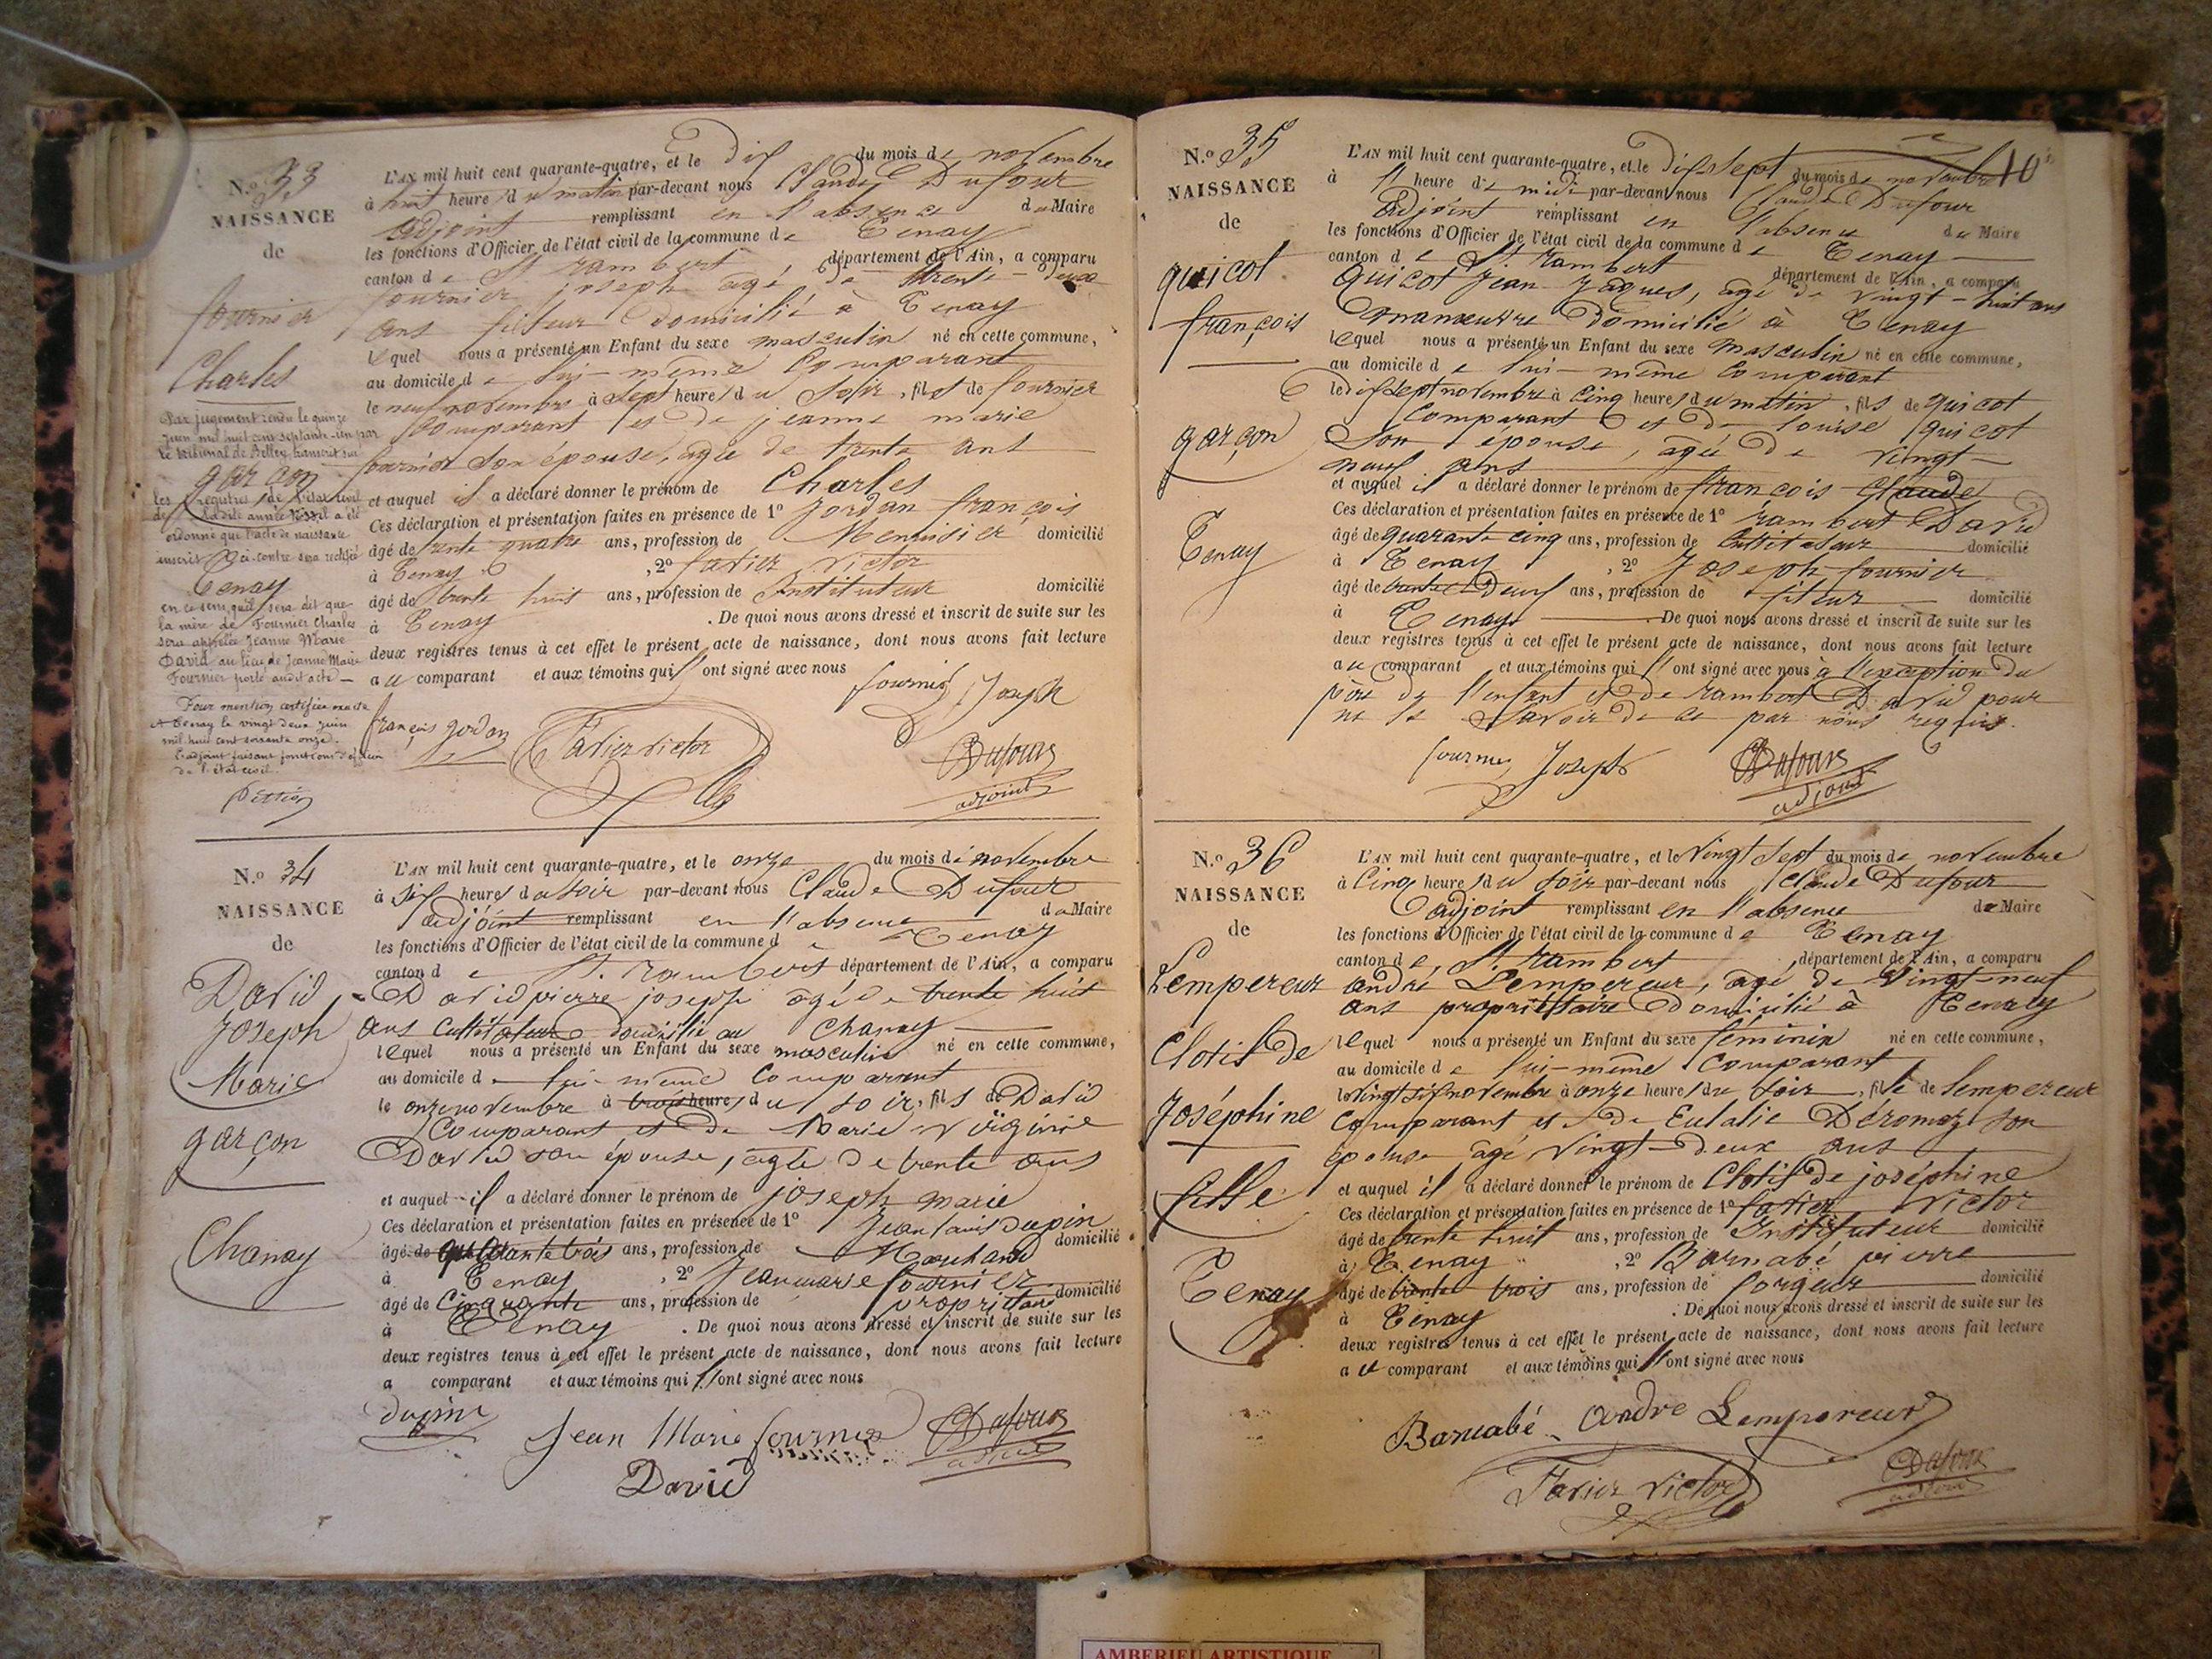 N.º 33
NAISSANCE
de
fournier
Charles
Par jugement rendu le quinze
juin mil huit cent septante-un par
le tribunal de Belley, transcrit sur
garçon
les registres de l'état civil
de la dite année 1871 il a été
ordonné que l'acte de naissance
inscrit ci-contre sera rectifié
Tenay
en ce sens qu'il sera dit que
la mère de Fournier Charles
sera appelée Jeanne Marie
David au lieu de Jeanne Marie
Fournier porté audit acte
Pour mention certifiée exacte
à Tenay le vingt deux juin
mil huit cent soixante onze.
L'adjoint faisant fonctions d'officier
de l'état civil.
L'AN mil huit cent quarante-quatre, et le dix du mois de novembre
à huit heure du matin par-devant nous Claude Dufour
adjoint remplissant en l'absence du Maire
les fonctions d'Officier de l'état civil de la commune de Tenay
canton de St rambert, département de l'Ain, a comparu
fournier joseph agé de trente-deux
ans fileur domicilié à Tenay
lequel nous a présenté un Enfant du sexe masculin né en cette commune,
au domicile de lui-même Comparant
le neuf novembre à sept heures du Soir, fils de fournier
Comparant et de jeanne marie
fournier son épouse, agée de trente ans
et auquel il a déclaré donner le prénom de Charles
Ces déclaration et présentation faites en présence de 1º Jordan françois
âgé de trente quatre ans, profession de Menuisier domicilié
à Tenay, 2º favier victor
âgé de trente huit ans, profession de Instituteur domicilié
à Tenay. De quoi nous avons dressé et inscrit de suite sur les
deux registres tenus à cet effet le présent acte de naissance, dont nous avons fait lecture
au comparant et aux témoins qui l'ont signé avec nous
fournier Joseph
françois jordan Favier victor Dufour
adjoint
N.º 34
NAISSANCE
de
David
Joseph
Marie
garçon
Chanay
L'AN mil huit cent quarante-quatre, et le onze du mois de novembre
à six heures du soir par-devant nous Claude Dufour
adjoint remplissant en l'absence du Maire
les fonctions d'Officier de l'état civil de la commune de Tenay
canton de St. rambert département de l'Ain, a comparu
David pierre joseph agé de trente huit
ans Cultivateur domicilié au Chanay
lequel nous a présenté un Enfant du sexe masculin né en cette commune,
au domicile de lui-même Comparant
le onze novembre à trois heures du soir, fils de David
Comparant et de Marie virginie
David son épouse, agée de trente ans
et auquel il a déclaré donner le prénom de joseph marie
Ces déclaration et présentation faites en présence de 1º Jean louis dupin
âgé de quarante trois ans, profession de Marchand domicilié
à Tenay, 2º Jean marie fournier
âgé de Cinquante ans, profession de propriétaire domicilié
à Tenay. De quoi nous avons dressé et inscrit de suite sur les
deux registres tenus à cet effet le présent acte de naissance, dont nous avons fait lecture
a comparant et aux témoins qui l'ont signé avec nous
dupin Jean Marie fournier Dufour
adjoint
David
10
N.º 35
NAISSANCE
de
quicot
françois
garçon
Tenay
L'AN mil huit cent quarante-quatre, et le dix sept du mois de novembre
à 11 heure de midi par-devant nous Claude Dufour
adjoint remplissant en l'absence du Maire
les fonctions d'Officier de l'état civil de la commune de Tenay
canton de St rambert département de l'Ain, a comparu
quicot Jean Jaques, agé de vingt-huit ans
manœuvre domicilié à Tenay
lequel nous a présenté un Enfant du sexe masculin né en cette commune,
au domicile de lui-même Comparant
le dix sept novembre à Cinq heures du matin, fils de quicot
Comparant et de louise quicot
Son épouse, agée de vingt-
neuf ans
et auquel il a déclaré donner le prénom de françois Claude
Ces déclaration et présentation faites en présence de 1º rambert David
âgé de quarante cinq ans, profession de Cultivateur domicilié
à Tenay, 2º Joseph fournier
âgé de trente deux ans, profession de fileur domicilié
à Tenay. De quoi nous avons dressé et inscrit de suite sur les
deux registres tenus à cet effet le présent acte de naissance, dont nous avons fait lecture
au comparant et aux témoins qui l'ont signé avec nous à l'exception du
père de l'enfant et de rambert David pour
ne le savoir de ce par nous requis.
fournier Joseph Dufour
adjoint
N.º 36
NAISSANCE
de
Lempereur
Clotilde
Joséphine
fille
Tenay
L'AN mil huit cent quarante-quatre, et le vingt sept du mois de novembre
à Cinq heures du soir par-devant nous Claude Dufour
adjoint remplissant en l'absence du Maire
les fonctions d'Officier de l'état civil de la commune de Tenay
canton de, St. rambert, département de l'Ain, a comparu
andré Lempereur, agé de vingt-neuf
ans propriétaire domicilié à Tenay
lequel nous a présenté un Enfant du sexe féminin né en cette commune,
au domicile de lui-même Comparant
le vingt six novembre à onze heures du soir, fille de lempereur
Comparant et de Eulalie Déromaz son
épouse agé vingt-deux ans
et auquel il a déclaré donner le prénom de Clotilde joséphine
Ces déclaration et présentation faites en présence de 1º favier victor
âgé de trente huit ans, profession de Instituteur domicilié
à Tenay, 2º Barnabé pierre
âgé de trente trois ans, profession de forgeur domicilié
à Tenay. De quoi nous avons dressé et inscrit de suite sur les
deux registres tenus à cet effet le présent acte de naissance, dont nous avons fait lecture
au comparant et aux témoins qui l'ont signé avec nous
Barnabé andre Lempereur
Favier victor Dufour
adjoint
AMBERIEU ARTISTIQUE